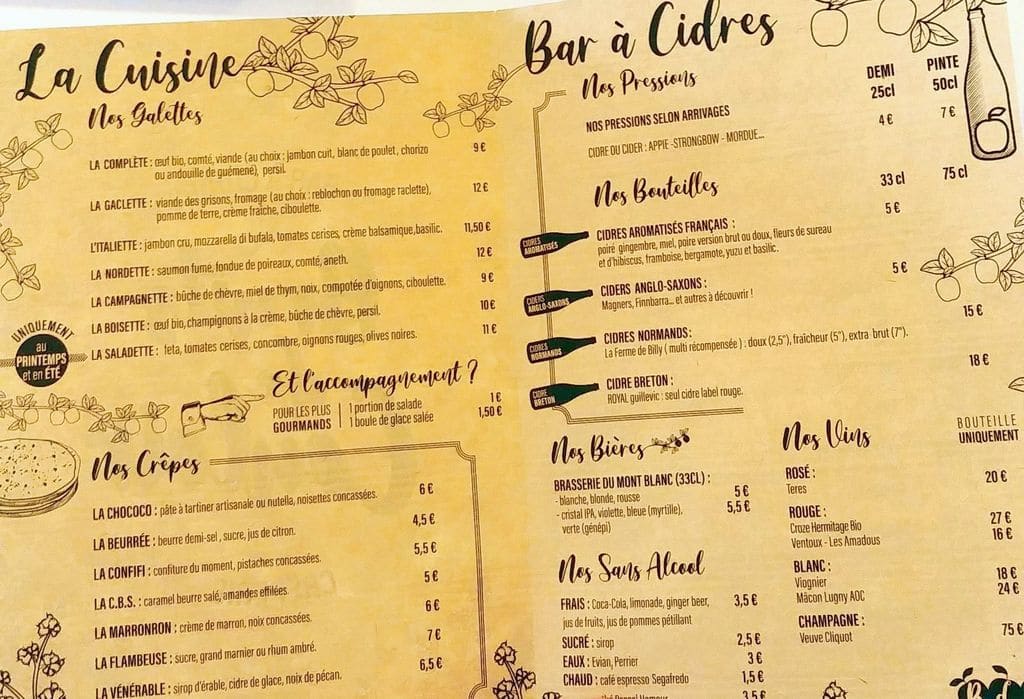 La Cuisine
Nos Galettes
LA COMPLÈTE : œuf bio, comté, viande (au choix : jambon cuit, blanc de poulet, chorizo 9 €
ou andouille de guémené), persil.
LA GACLETTE : viande des grisons, fromage (au choix : reblochon ou fromage raclette), 12 €
pomme de terre, crème fraîche, ciboulette.
L'ITALIETTE : jambon cru, mozzarella di bufala, tomates cerises, crème balsamique,basilic. 11,50 €
LA NORDETTE : saumon fumé, fondue de poireaux, comté, aneth. 12 €
LA CAMPAGNETTE : bûche de chèvre, miel de thym, noix, compotée d'oignons, ciboulette. 9 €
LA BOISETTE : œuf bio, champignons à la crème, bûche de chèvre, persil. 10 €
LA SALADETTE : feta, tomates cerises, concombre, oignons rouges, olives noires. 11 €
UNIQUEMENT
au
PRINTEMPS
et en ÉTÉ
Et l'accompagnement ?
POUR LES PLUS
GOURMANDS
1 portion de salade 1 €
1 boule de glace salée 1,50 €
Nos Crêpes
LA CHOCOCO : pâte à tartiner artisanale ou nutella, noisettes concassées. 6 €
LA BEURRÉE : beurre demi-sel , sucre, jus de citron. 4,5 €
LA CONFIFI : confiture du moment, pistaches concassées. 5,5 €
LA C.B.S. : caramel beurre salé, amandes effilées. 5 €
LA MARRONRON : crème de marron, noix concassées. 6 €
LA FLAMBEUSE : sucre, grand marnier ou rhum ambré. 7 €
LA VÉNÉRABLE : sirop d'érable, cidre de glace, noix de pécan. 6,5 €
Bar à Cidres
Nos Pressions
DEMI
25cl
PINTE
50cl
NOS PRESSIONS SELON ARRIVAGES 4 € 7 €
CIDRE OU CIDER : APPIE -STRONGBOW - MORDUE...
Nos Bouteilles
33 cl 75 cl
CIDRES
AROMATISÉS
CIDRES AROMATISÉS FRANÇAIS : 5 €
poiré gingembre, miel, poire version brut ou doux, fleurs de sureau
et d'hibiscus, framboise, bergamote, yuzu et basilic.
CIDERS
ANGLO-SAXONS
CIDERS ANGLO-SAXONS : 5 €
Magners, Finnbarra... et autres à découvrir !
CIDRES
NORMANDS
CIDRES NORMANDS : 15 €
La Ferme de Billy ( multi récompensée ) : doux (2,5°), fraîcheur (5°), extra brut (7°).
CIDRE
BRETON
CIDRE BRETON : 18 €
ROYAL guillevic : seul cidre label rouge.
Nos Bières
BRASSERIE DU MONT BLANC (33CL) :
- blanche, blonde, rousse 5 €
- cristal IPA, violette, bleue (myrtille), 5,5 €
verte (génépi)
Nos Sans Alcool
FRAIS : Coca-Cola, limonade, ginger beer, 3,5 €
jus de fruits, jus de pommes pétillant
SUCRÉ : sirop 2,5 €
EAUX : Evian, Perrier 3 €
CHAUD : café espresso Segafredo 1,5 €
3,5 €
Nos Vins
BOUTEILLE
UNIQUEMENT
ROSÉ :
Teres 20 €
ROUGE :
Croze Hermitage Bio 27 €
Ventoux - Les Amadous 16 €
BLANC :
Viognier 18 €
Mâcon Lugny AOC 24 €
CHAMPAGNE :
Veuve Cliquot 75 €